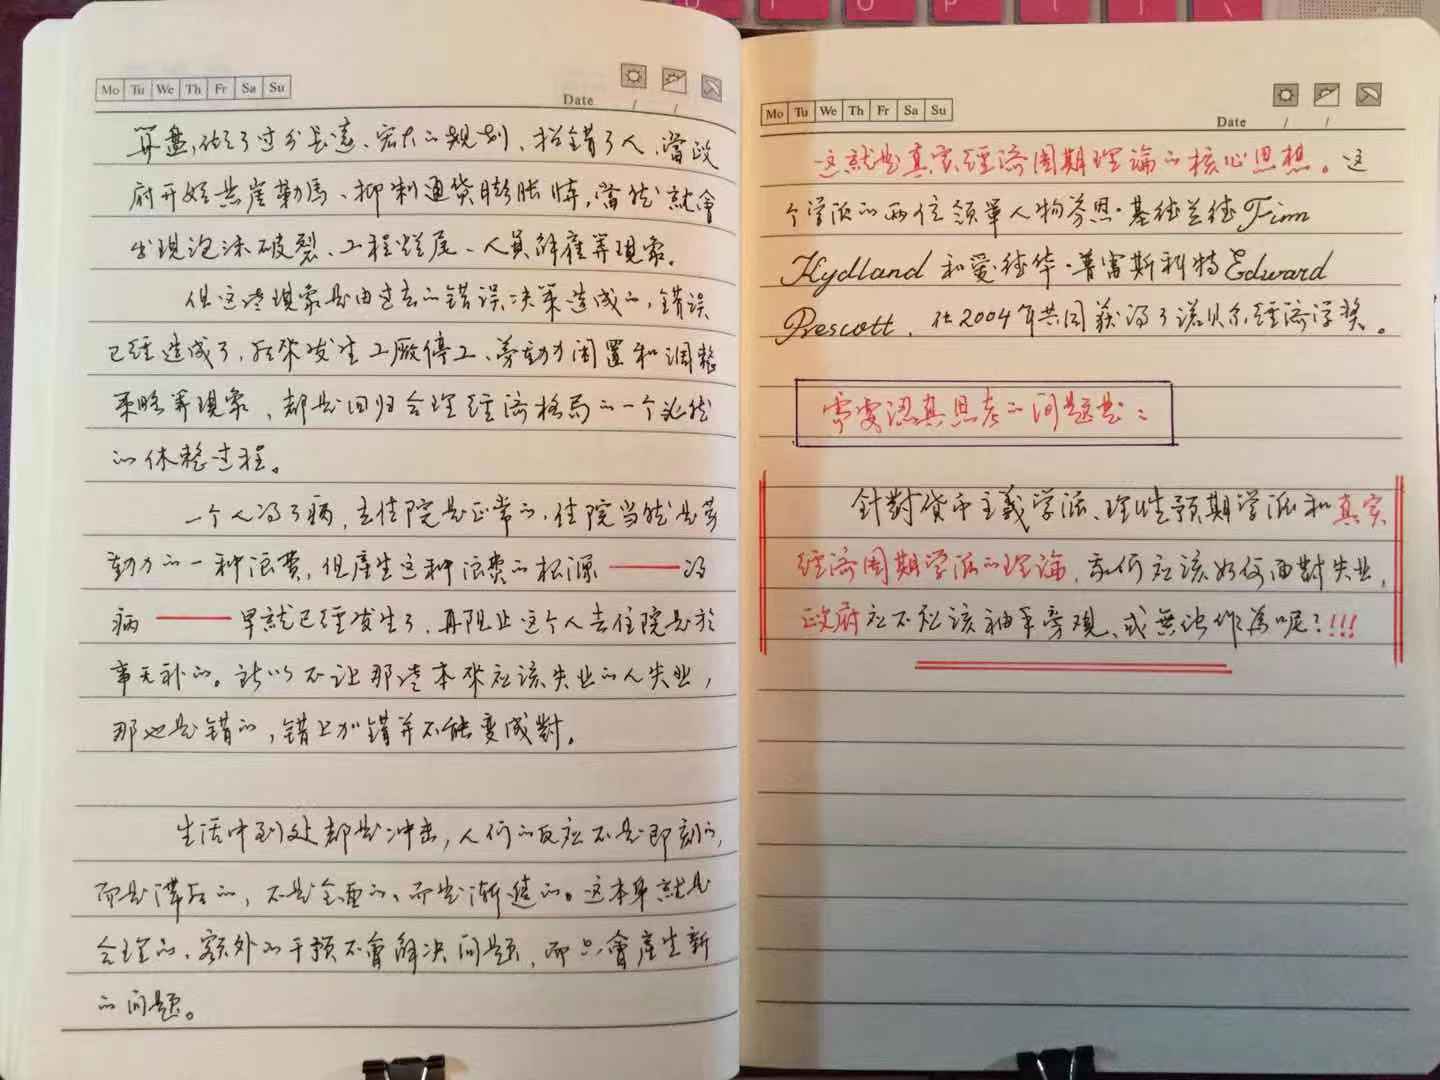 Mo Tu We Th Fr Sa Su
Date / /
算盘,做了过分长远、宏大的规划、招错了人,當政
府开始悬崖勒馬、抑制通货膨胀時,當然就會
出現泡沫破裂、工程烂尾、人員解雇等現象。
但这些現象是由过去的错误决策造成的,错误
已經造成了,后來发生工厰停工、劳動力閒置和调整
策略等現象,都是回归合理經济格局的一个必然
的休整过程。
一个人得了病,去住院是正常的,住院当然是劳
動力的一种浪费,但產生这种浪费的根源——得
病——早就已經发生了,再阻止这个人去住院是於
事无补的。所以不让那些本來应该失业的人失业,
那也是错的,错上加错并不能变成對。
生活中到处都是冲击,人们的反应不是即刻的,
而是滞后的,不是全面的、而是渐進的。这本身就是
合理的、额外的干预不會解决问题,而只會產生新
的问题。
Mo Tu We Th Fr Sa Su
Date / /
这就是真实經济周期理論的核心思想。这
个学派的两位领軍人物芬恩·基德兰德Finn
Kydland 和爱德华·普雷斯科特Edward
Prescott,在2004年共同获得了诺贝尔經济学奖。
需要認真思考的问题是:
針對货币主義学派、理性预期学派和真实
經济周期学派的理論,我们应该如何面對失业,
政府应不应该袖手旁观、或無法作為呢?!!!